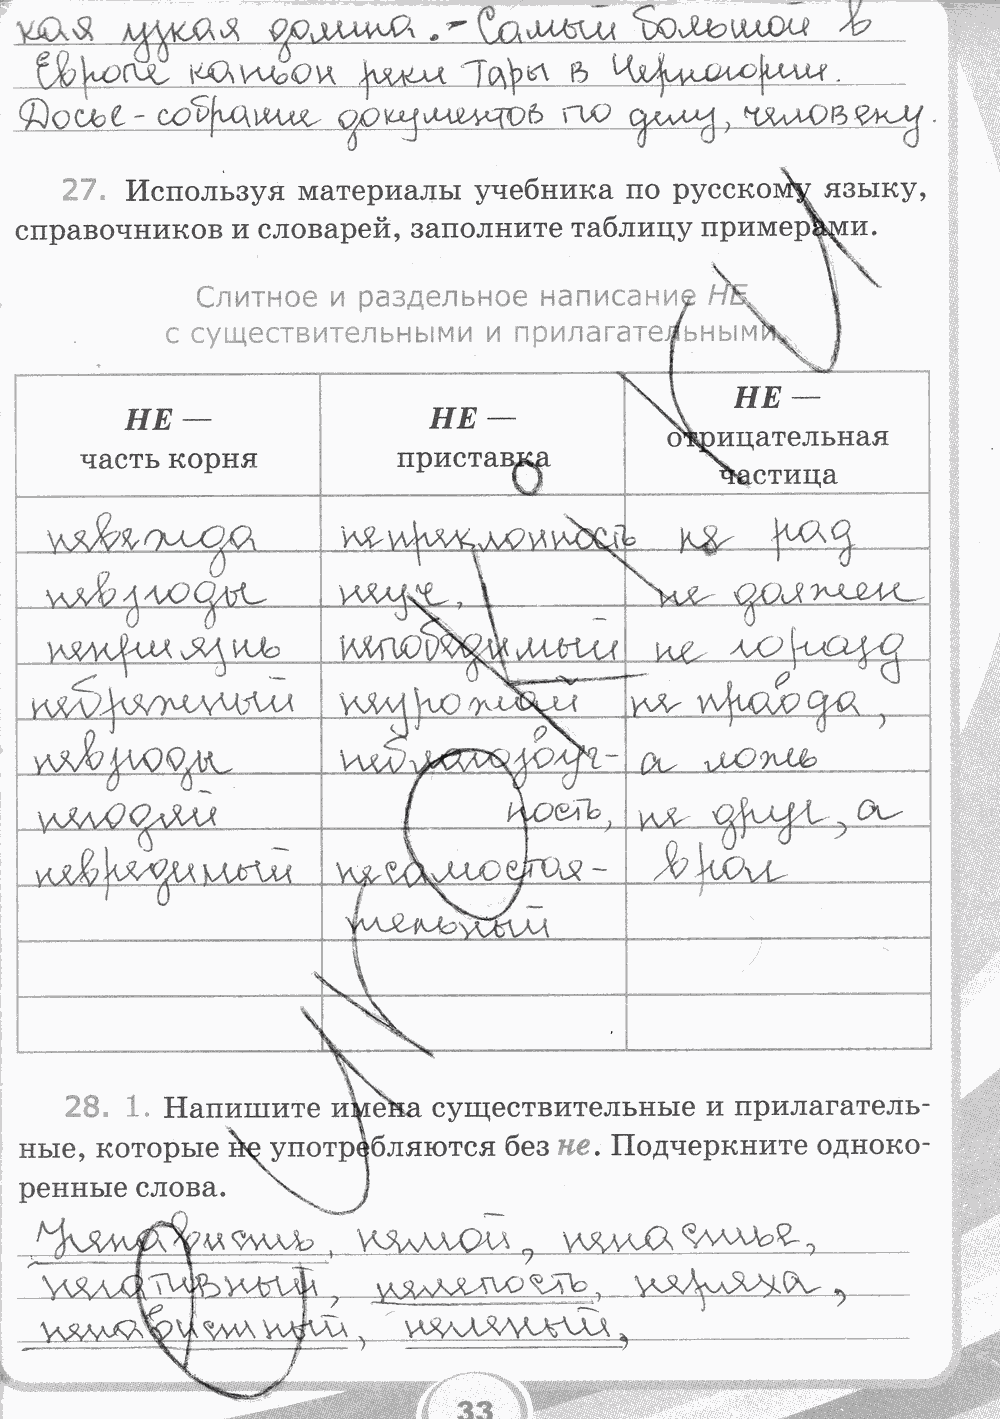 кая узкая долина. - Самый большой в
Европе каньон реки Тары в Черногории.
Досье - собрание документов по делу, человеку.
27. Используя материалы учебника по русскому языку,
справочников и словарей, заполните таблицу примерами.
Слитное и раздельное написание НЕ
с существительными и прилагательными
НЕ — часть корня
НЕ — приставка
НЕ — отрицательная частица
невежда непреклонность не рад
невзгоды неуч, не должен
неприязнь непобедимый не горазд
небрежный неурожай не правда,
невзгоды неблагозвуч- а ложь
негодяй ность, не друг, а
невредимый несамостоя- враг
тельный
28. 1. Напишите имена существительные и прилагатель-
ные, которые не употребляются без не. Подчеркните одноко-
ренные слова.
Ненависть, немой, ненастье,
негативный, нелепость, неряха,
ненавистный, нелепый,
33